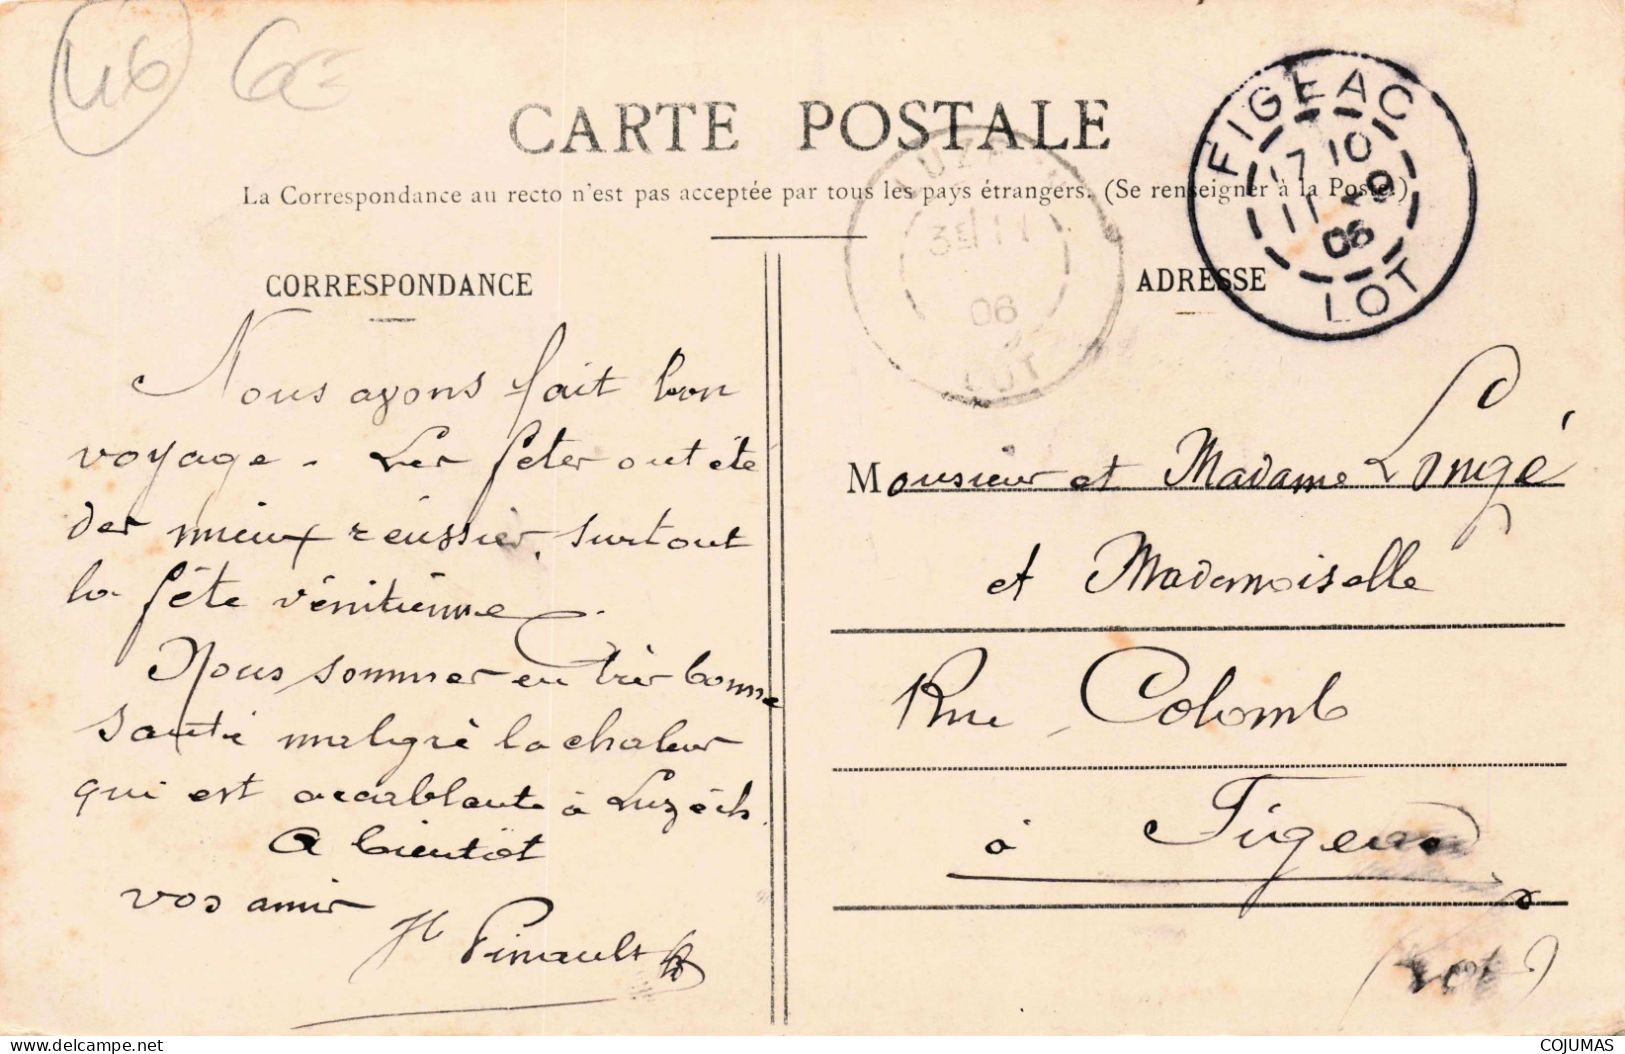 46 6€
CARTE POSTALE
La Correspondance au recto n'est pas acceptée par tous les pays étrangers. (Se renseigner à la Poste.)
FIGEAC
17 10
11 9
06
LOT
LUZECH
3E 11
06
LOT
CORRESPONDANCE
Nous avons fait bon
voyage. Les fêtes ont été
des mieux réussies, surtout
la fête vénitienne.
Nous sommes en très bonne
santé malgré la chaleur
qui est accablante à Luzech.
A bientôt
vos amis
H Pinault
ADRESSE
Monsieur et Madame Longé
et Mademoiselle
Rue Colomb
à Figeac
(Lot)
COJUMAS
delcampe.net